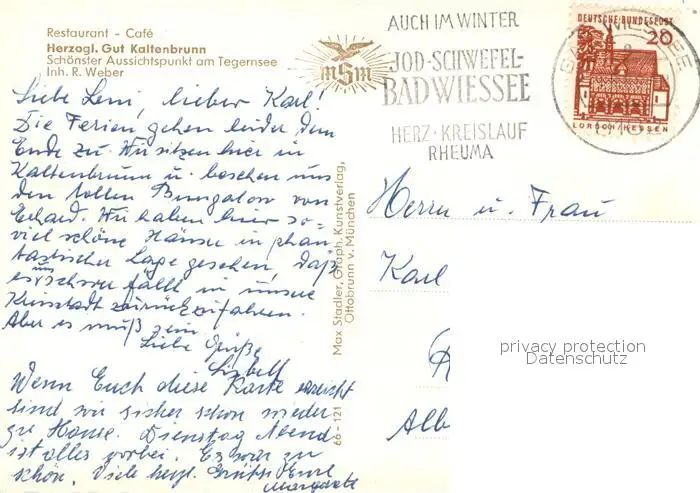 Restaurant - Café
Herzogl. Gut Kaltenbrunn
Schönster Aussichtspunkt am Tegernsee
Inh. R. Weber
mSm
AUCH IM WINTER
JOD-SCHWEFEL-
BAD WIESSEE
HERZ·KREISLAUF
RHEUMA
DEUTSCHE BUNDESPOST
20
LORSCH/HESSEN
Liebe Leni, lieber Karl!
Die Ferien gehen leider dem
Ende zu. Wir sitzen hier in
Kaltenbrunn u. beschen uns
den tollen Bungalow von
Erhard. Wir haben hier so-
viel schöne Häuser in phan-
tastischer Lage gesehen, daß
es uns schwer fällt in unsere
Kleinstadt zurückzufahren.
Aber es muß sein.
Liebe Grüße
Wenn Euch diese Karte erreicht
sind wir sicher schon wieder
zu Hause. Dienstag Abend
ist alles vorbei. Es war zu
schön. Viele herzl. Grüße Eure
Margarete
Max Stadler, Graph. Kunstverlag,
Ottobrunn v. München
66 - 121
Herrn u. Frau
Karl
Alb
privacy protection
Datenschutz